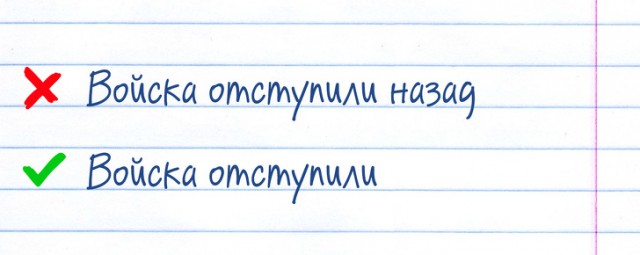 Войска отступили назад
Войска отступили